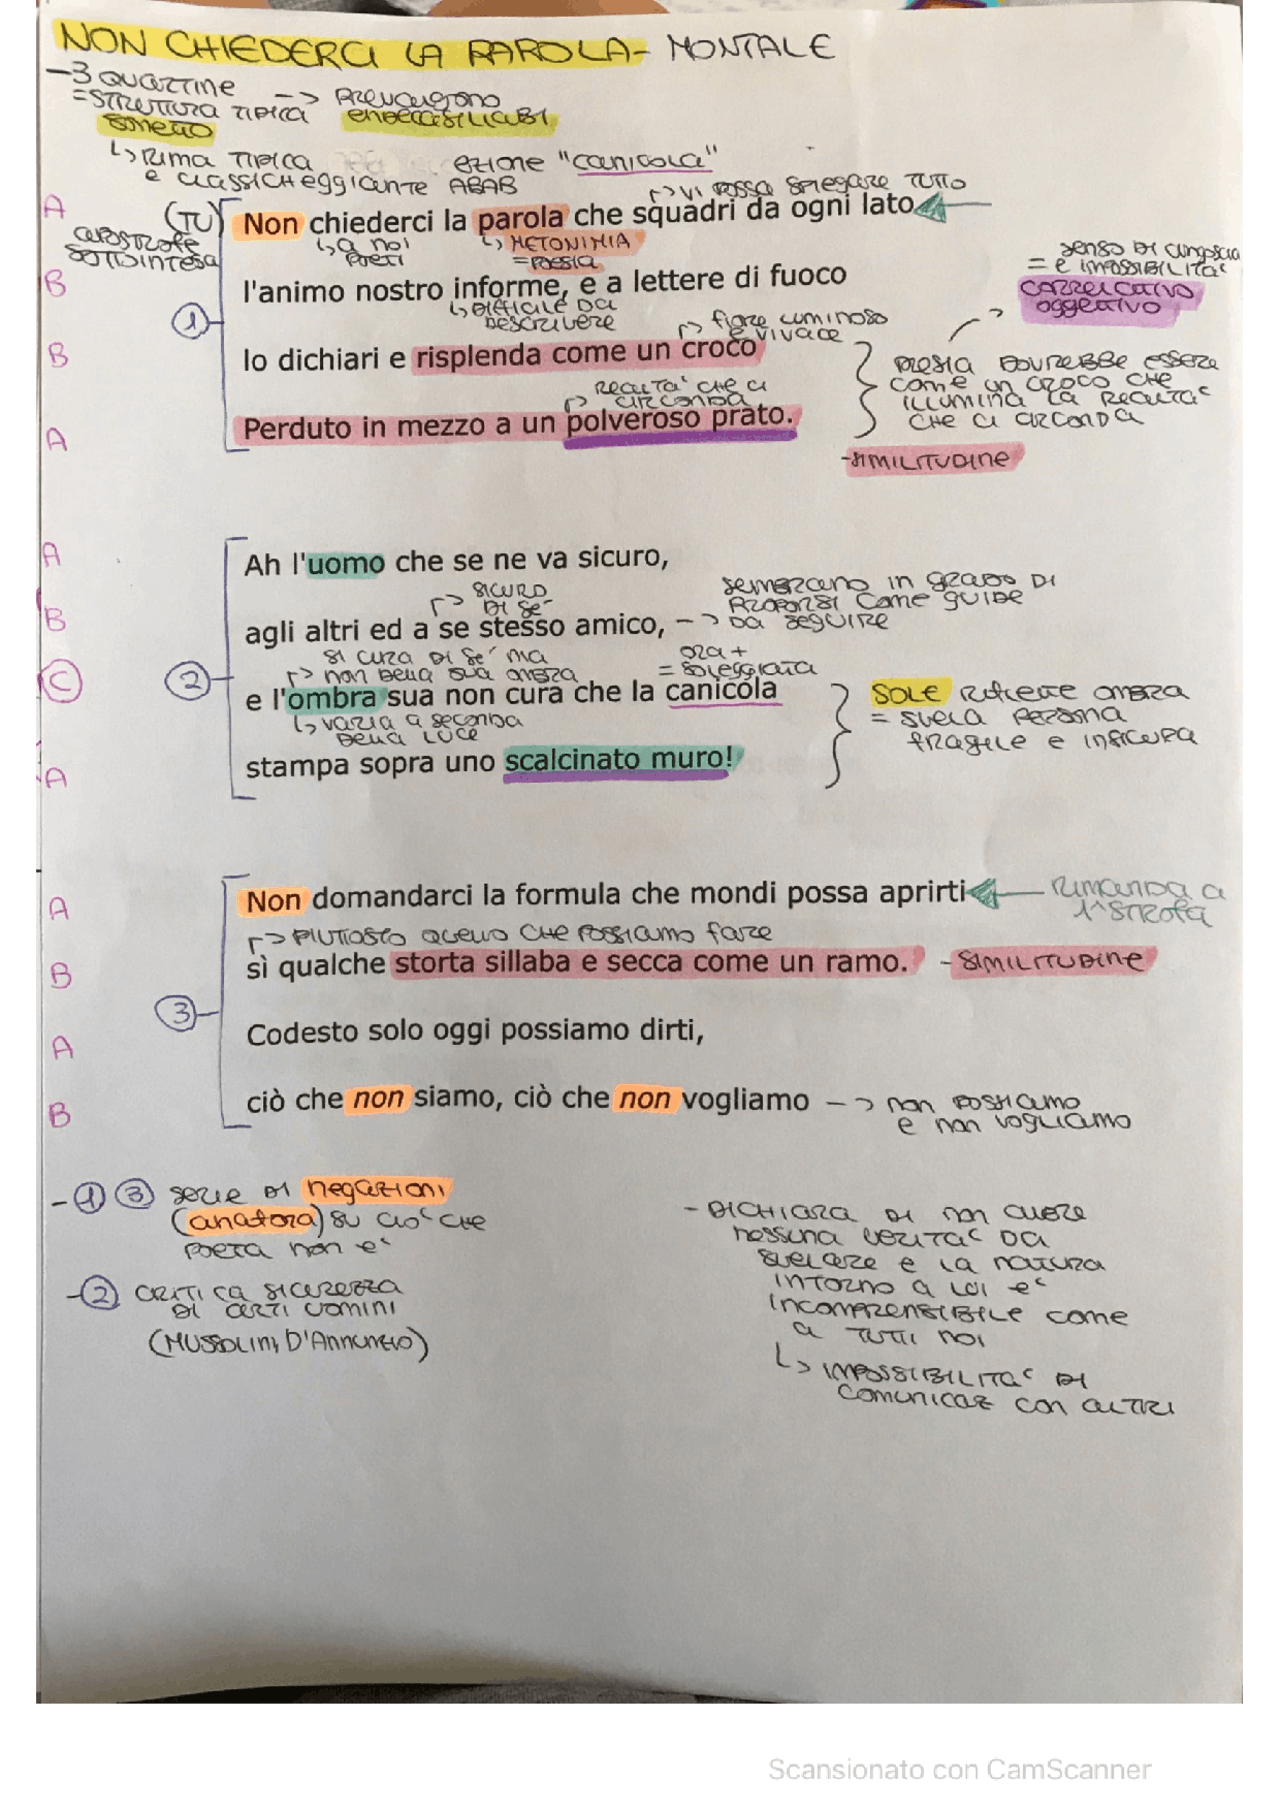 NON CHIEDERCI LA PAROLA - MONTALE
-3 QUARTINE
= STRUTTURA TIPICA --> PREVALGONO
SONETTO ENDECASILLABI
↳ RIMA TIPICA EZIONE "CANICOLA"
E CLASSICHEGGIANTE ABAB
↱> VI POSSA SPIEGARE TUTTO
A (TU) Non chiederci la parola che squadri da ogni lato
APOSTROFE SOTTOINTESA
↳ A NOI POETI
↳ METONIMIA = POESIA
B l'animo nostro informe, e a lettere di fuoco
↳ DIFFICILE DA DESCRIVERE
↱> FIORE LUMINOSO E VIVACE
SENSO DI ANGOSCIA
= E IMPOSSIBILITA'
CORRELATIVO
OGGETTIVO
1
B lo dichiari e risplenda come un croco
POESIA DOVREBBE ESSERE
COME UN CROCO CHE
ILLUMINA LA REALTA'
CHE CI CIRCONDA
↱> REALTA' CHE CI CIRCONDA
A Perduto in mezzo a un polveroso prato.
-SIMILITUDINE
A Ah l'uomo che se ne va sicuro,
↱> SICURO DI SE'
B agli altri ed a se stesso amico, --> SEMBRANO IN GRADO DI
PROPORSI COME GUIDE
DA SEGUIRE
↱> SI CURA DI SE' MA
NON DELLA SUA OMBRA
ORA +
= SOLEGGIATA
2
C e l'ombra sua non cura che la canicola
↳ VARIA A SECONDA
DELLA LUCE
SOLE RIFLETTE OMBRA
= SVELA PERSONA
FRAGILE E INSICURA
A stampa sopra uno scalcinato muro!
A Non domandarci la formula che mondi possa aprirti
RIMANDA A
1^ STROFA
↱> PIUTTOSTO QUELLO CHE POSSIAMO FARE
B sì qualche storta sillaba e secca come un ramo. - SIMILITUDINE
3
A Codesto solo oggi possiamo dirti,
B ciò che non siamo, ciò che non vogliamo --> NON POSSIAMO
E NON VOGLIAMO
- 1 3 SERIE DI NEGAZIONI
(ANAFORA) SU CIO' CHE
POETA NON E'
- 2 CRITICA SICUREZZA
DI CERTI UOMINI
(MUSSOLINI, D'ANNUNZIO)
- DICHIARA DI NON AVERE
NESSUNA VERITA' DA
SVELARE E LA NATURA
INTORNO A LUI E'
INCOMPRENSIBILE COME
A TUTTI NOI
↳ IMPOSSIBILITA' DI
COMUNICAZ CON ALTRI
Scansionato con CamScanner